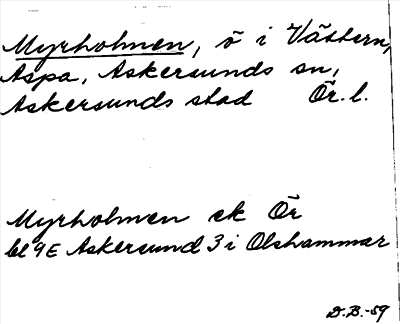 Myrholmen, ö i Vättern,
Aspa, Askersunds sn,
Askersunds stad Ör. l.
Myrholmen ek Ör
bl 9E Askersund 3 i Olshammar
D.B.-59